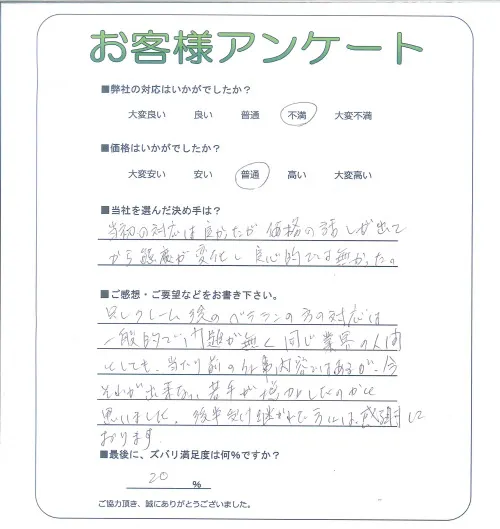 お客様アンケート
■弊社の対応はいかがでしたか？
大変良い 良い 普通 不満 大変不満
■価格はいかがでしたか？
大変安い 安い 普通 高い 大変高い
■当社を選んだ決め手は？
当初の対応は良かったが価格の話しが出て
から態度が変化し良心的では無かった。
■ご感想・ご要望などをお書き下さい。
クレーム後のベテランの方の対応は
一般的で問題が無く同じ業界の人間
としても、当たり前の仕事内容ではあるが、今
それが出来ない若手が増加したのかと
思いました。後半受け継がれた方には感謝して
おります
■最後に、ズバリ満足度は何％ですか？
20 ％
ご協力頂き、誠にありがとうございました。